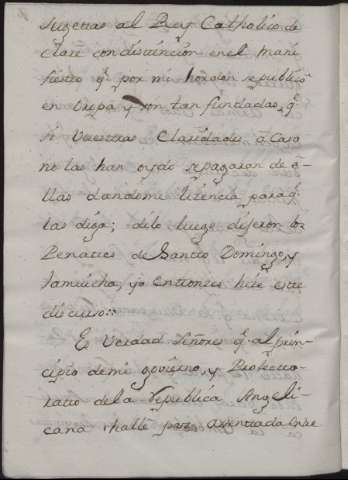 sugettas al Rey Catholico de
claré con distincion en el mani
fiesto q̃ por mi horden se publicò
en Vrpa, y son tan fundadas, q̃
si Vuestras Claridades à Caso
no las han oydo se pagaran de e-
llas dandome licencia para q̃
las diga; de lo luego dijeron los
Penates de Santo Domingo, y
Jamaicha, yo entonces hice este
discurso::
Es Verdad Señores q̃ al prin-
cipio de mi govierno, y Protecto-
ratio de la Republica Angeli-
cana, hallè paz asentada entre